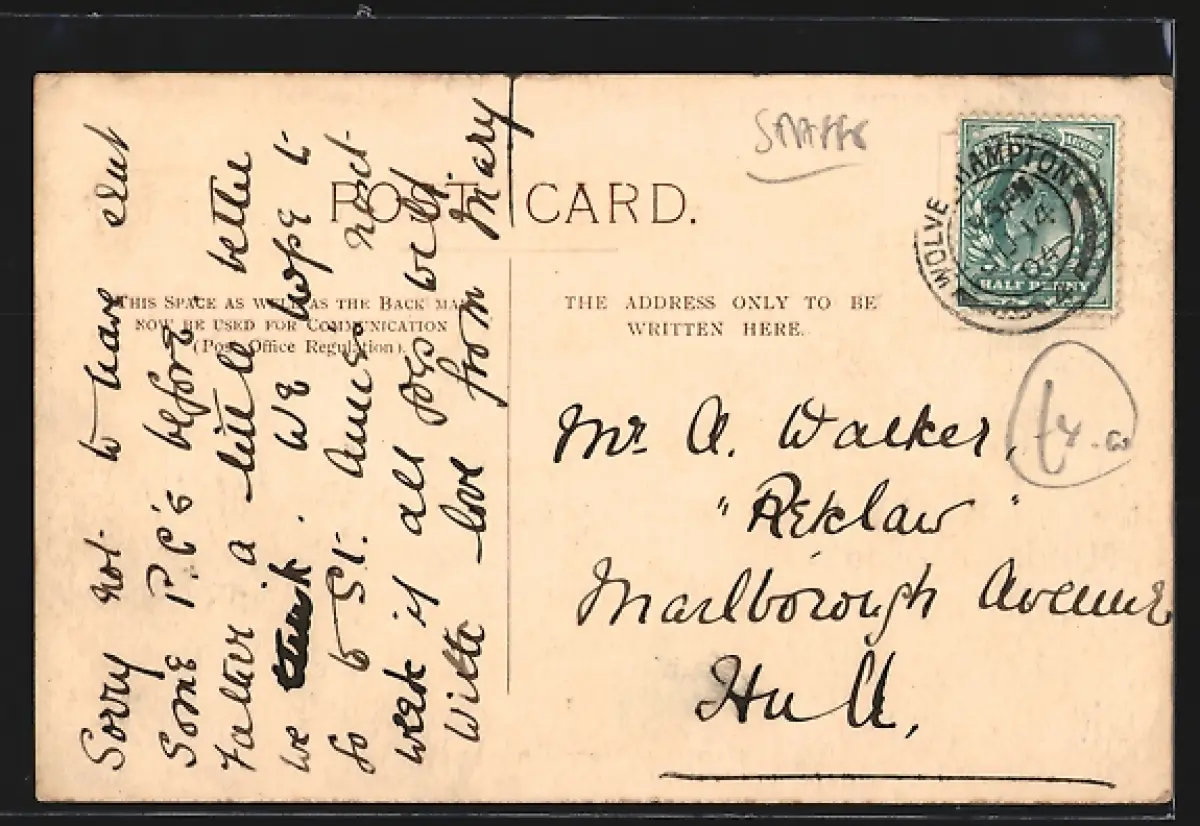 STAFFS
POST CARD.
THIS SPACE AS WELL AS THE BACK MAY
NOW BE USED FOR COMMUNICATION
(Post Office Regulation).
THE ADDRESS ONLY TO BE
WRITTEN HERE.
WOLVERHAMPTON
5 PM
14
04
HALF PENNY
Mr A. Walker,
"Reklaw"
Marlborough Avenue
Hull,
Sorry not to have sent
some P.C's before.
Father a little better
we think. We hope to
go to St. Annes next
week if all goes well.
With love from Mary